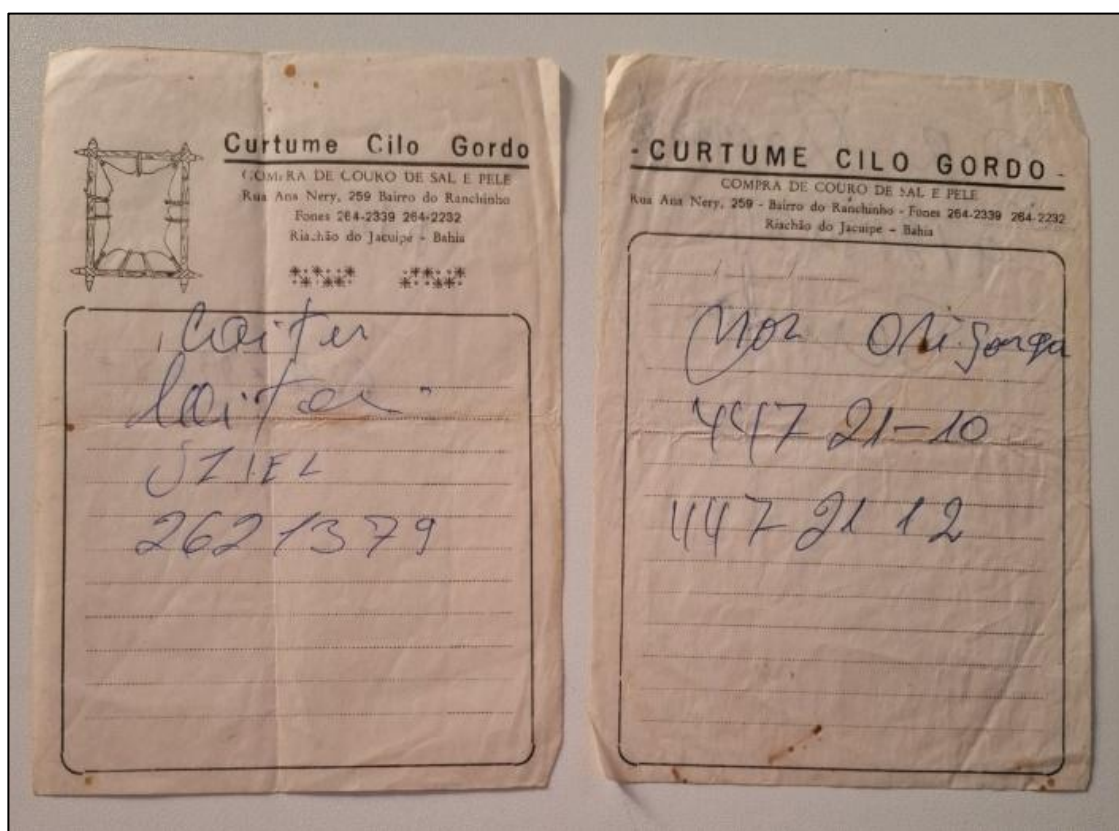 Curtume Cilo Gordo
COMPRA DE COURO DE SAL E PELE
Rua Ana Nery, 259 Bairro do Ranchinho
Fones 264-2339 264-2232
Riachão do Jacuipe - Bahia
SZIEL
262 1379
- CURTUME CILO GORDO -
COMPRA DE COURO DE SAL E PELE
Rua Ana Nery, 259 - Bairro do Ranchinho - Fones 264-2339 264-2232
Riachão do Jacuipe - Bahia
447 21-10
447 21 12